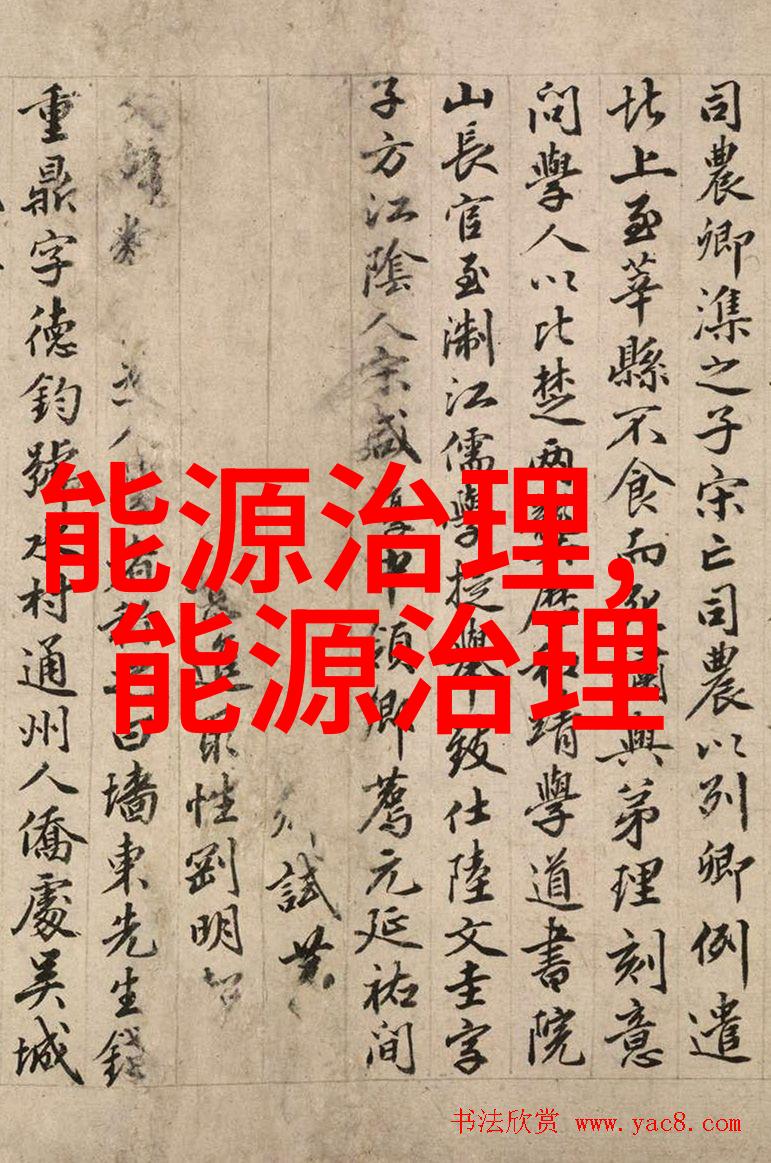 司農卿潗之子宋亡司農以列卿例遣
北上至莘縣不食而與弟理刻意
問學人以比楚兩龔歷和靖學道書院
山長官至淛江儒學提舉致仕陸文圭字
子方江陰人宋咸淳中領鄉薦元延祐間
試
進取性劉明
人曰墻東先生錢
重鼎字德鈞號水村通州人僑處吴城
能源治理,
能源治理
书法欣赏 www.yac8.com